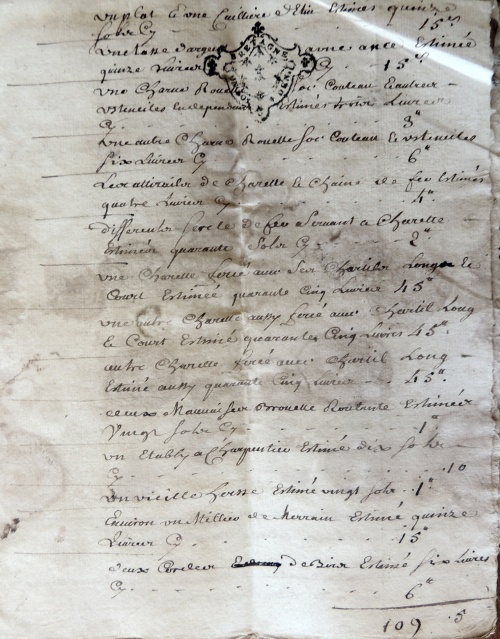 un plat et une Cuilliere d'Etin Estimes quinze
sols Cy 15 s
une tasse d'argent ance Estimée
quinze Livres Cy 15"
une Charue Rouelle soc Couteau & autres
ustencilles En dependant Estimés trois Livres
Cy 3"
une autre Charue Rouelle soc Couteau & ustenciles
six Livres Cy 6"
Les attirailes de Charette & Chaine de fer Estimés
quatre Livres Cy 4"
differents sercle de fer servant a Charette
Estimés quarante sols Cy 2"
une Charette ferée avec ses Chartils Long &
Court Estimée quarante Cinq Livres 45"
une autre Charette aussy ferée avec Chartil Long
& Court Estimé quarante Cinq Livres 45"
autre Charette ferée avec Chartil Long
Estimé aussy quarante Cinq Livres 45"
deux Mauvaises Rouelle Estimées
Vingt sols Cy 1"
un Etably a Charpentier Estimé dix sols
Cy 10
un vieille Estimé vingt sols 1"
Environ un Millier de Merrain Estimé quinze
Livres Cy 15"
deux Cordes de Bois Estimé six Livres
Cy 6"
109 5